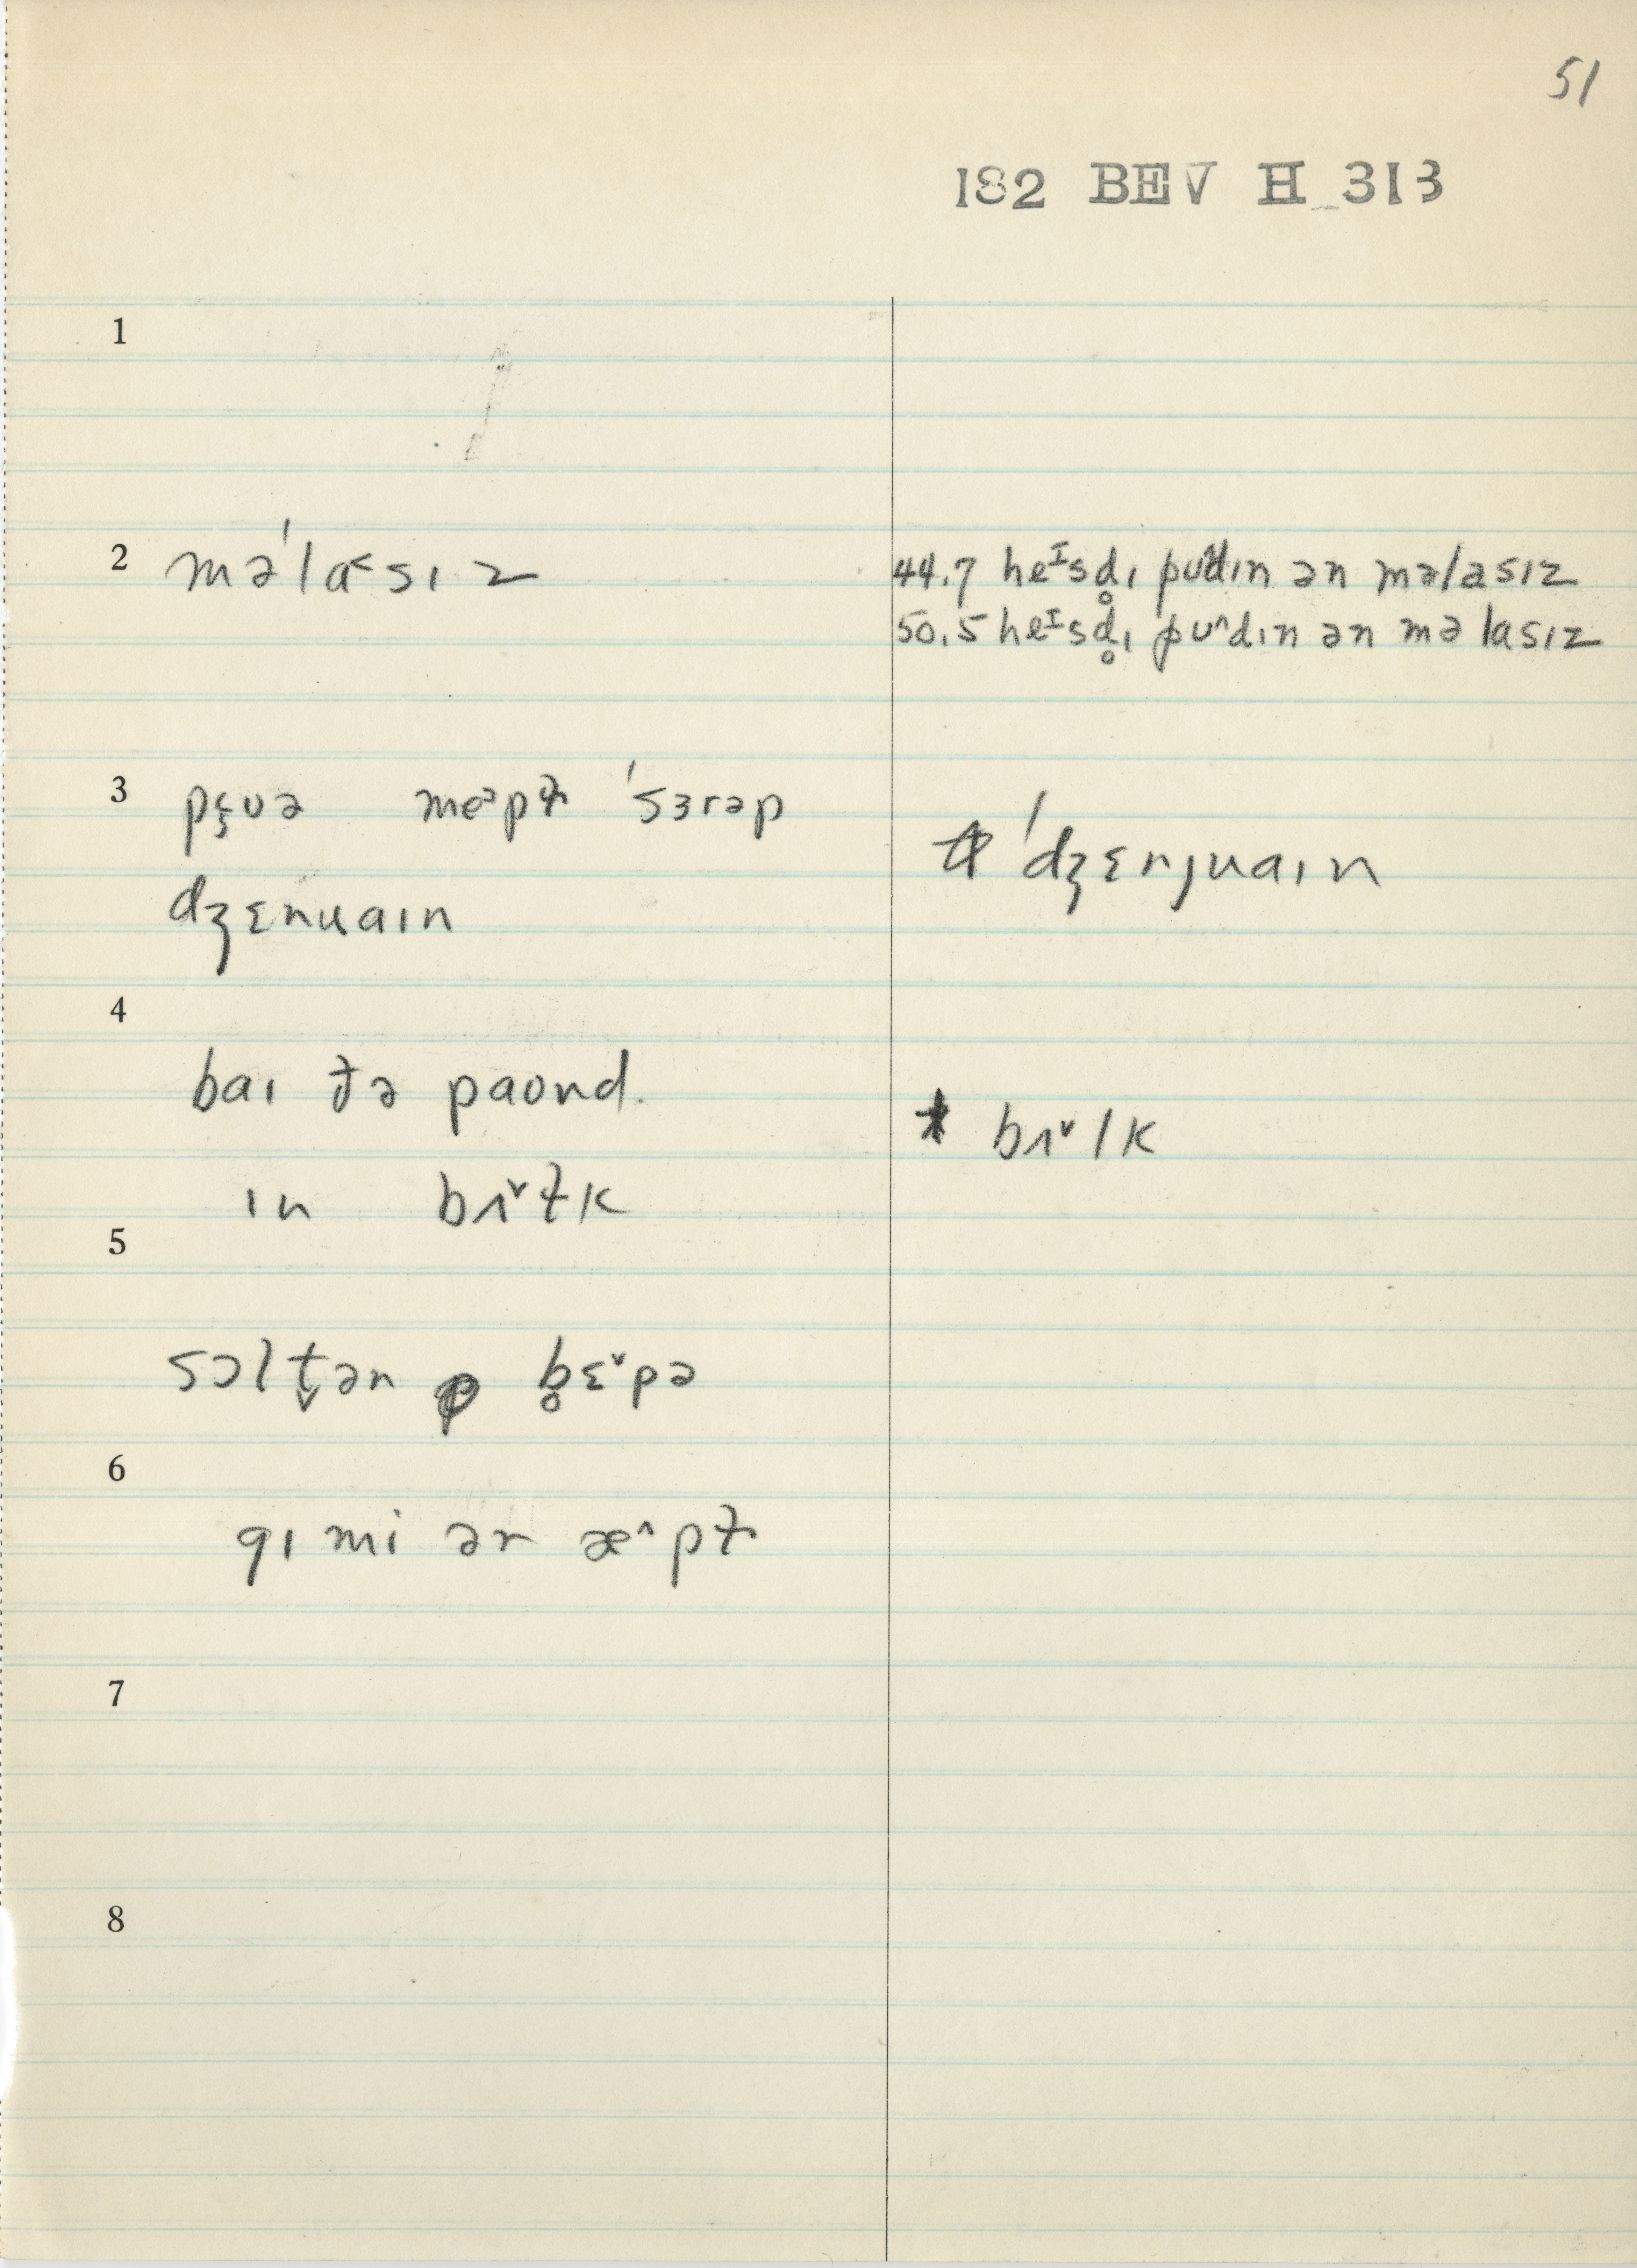 51
182 BEV H 313
1
2 mə'la˂sɪz
44.7 heᴵsd̥ɪ pʊ^dɪn ən məlasɪz
50.5 heᴵsd̥ɪ pʊ^dɪn ən məlasɪz
3 pɛ̨ʊə meᵊpɫ 'sɜrəp
dʒɛnuaɪn
'dʒɛnjuaɪn
4
baɪ ðə paʊnd.
ɪn bʌˇɫk
* bʌˇlk
5
sɔlt̬ən b̥ɛˇpə
6
gɪ mi ən æ^pɫ
7
8